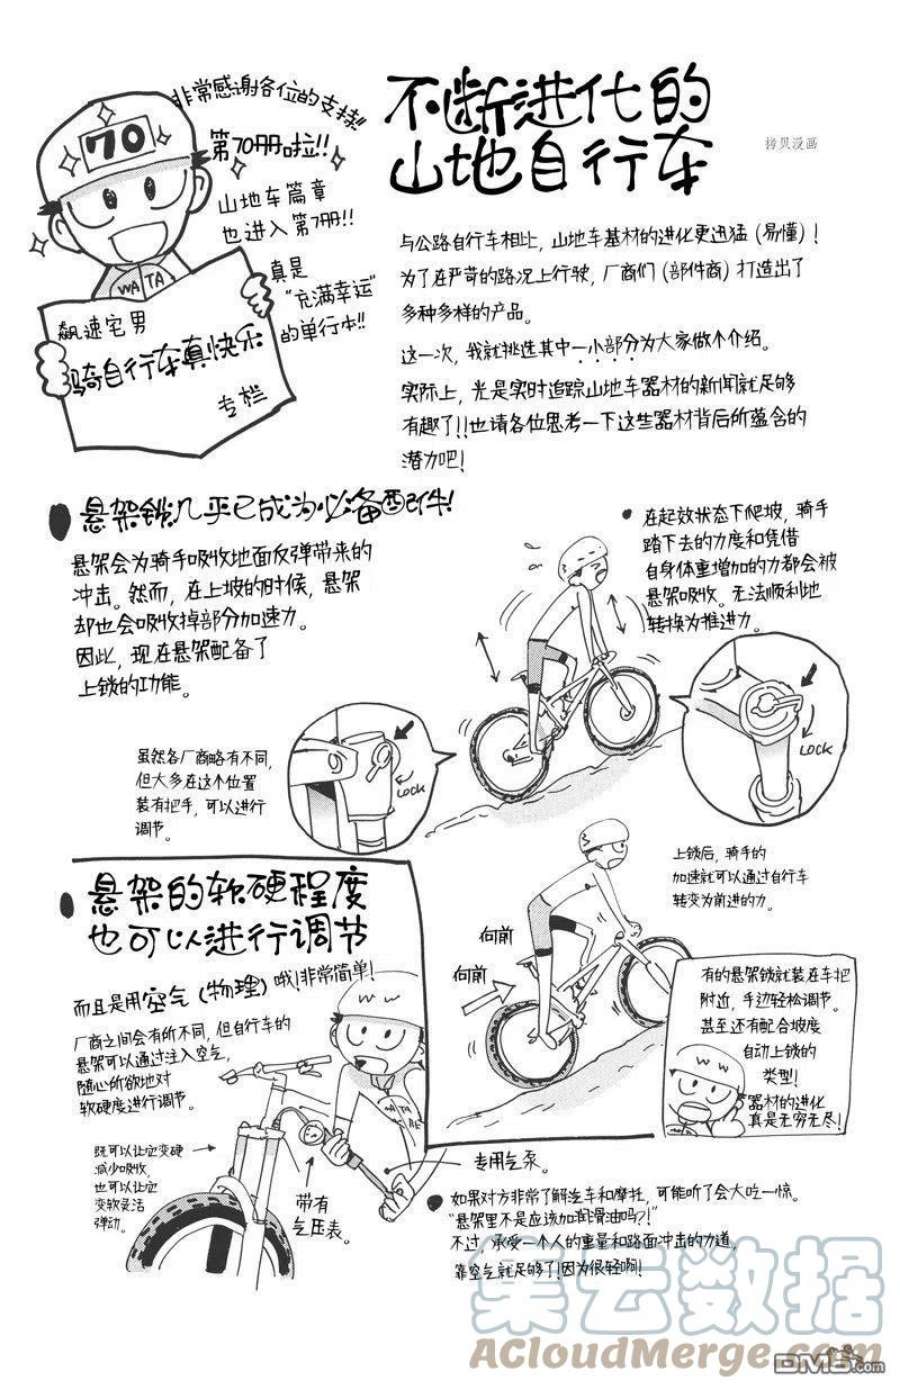 非常感谢各位的支持!!
第70册啦!!
山地车篇章
也进入第7册!!
真是
“充满幸运”
的单行本!!
70
WATA
飙速宅男
骑自行车真快乐
专栏
不断进化的
山地自行车
拷贝漫画
与公路自行车相比，山地车基材的进化更迅猛（易懂）！
为了在严苛的路况上行驶，厂商们（部件商）打造出了
多种多样的产品。
这一次，我就挑选其中一小部分为大家做个介绍。
实际上，光是实时追踪山地车器材的新闻就足够
有趣了!!也请各位思考一下这些器材背后所蕴含的
潜力吧！
悬架锁几乎已成为必备配件！
悬架会为骑手吸收地面反弹带来的
冲击。然而，在上坡的时候，悬架
却也会吸收掉部分加速力。
因此，现在悬架配备了
上锁的功能。
在起效状态下爬坡，骑手
踏下去的力度和凭借
自身体重增加的力都会被
悬架吸收。无法顺利地
转换为推进力。
虽然各厂商略有不同，
但大多在这个位置
装有把手，可以进行
调节。
LOCK
LOCK
上锁后，骑手的
加速就可以通过自行车
转变为前进的力。
向前
向前
有的悬架锁就装在车把
附近，手边轻松调节。
甚至还有配合坡度
自动上锁的
类型！
器材的进化
真是无穷无尽！
悬架的软硬程度
也可以进行调节
而且是用空气（物理）哦！非常简单！
厂商之间会有所不同，但自行车的
悬架可以通过注入空气，
随心所欲地对
软硬度进行调节。
既可以让它变硬
减少吸收，
也可以让它
变软灵活
弹动。
带有
气压表。
专用气泵。
如果对方非常了解汽车和摩托，可能听了会大吃一惊。
“悬架里不是应该加润滑油吗?!”
不过，承受一个人的重量和路面冲击的力道，
靠空气就足够了！因为很轻啊！
集云数据
ACloudMerge.com
DM5